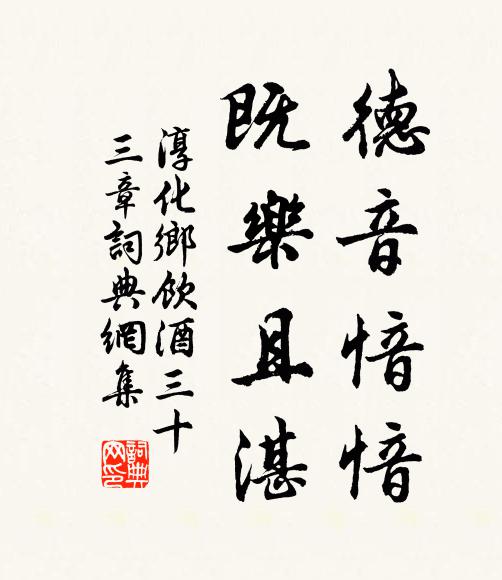 德音愔愔
既樂且湛
淳化鄉飲酒三十
三章詞典網集
詞典網印